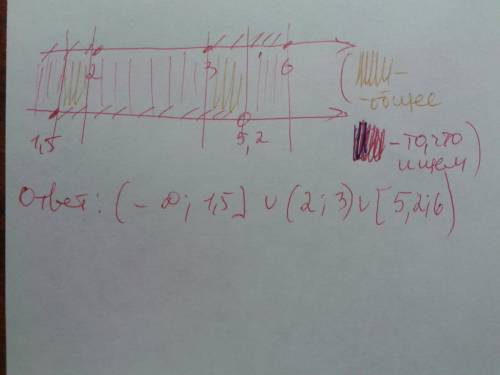 2 3 6
1,5 5,2
( - общее
- то, что
ищем)
Ответ: (-∞; 1,5] ∪ (2; 3) ∪ [5,2; 6)